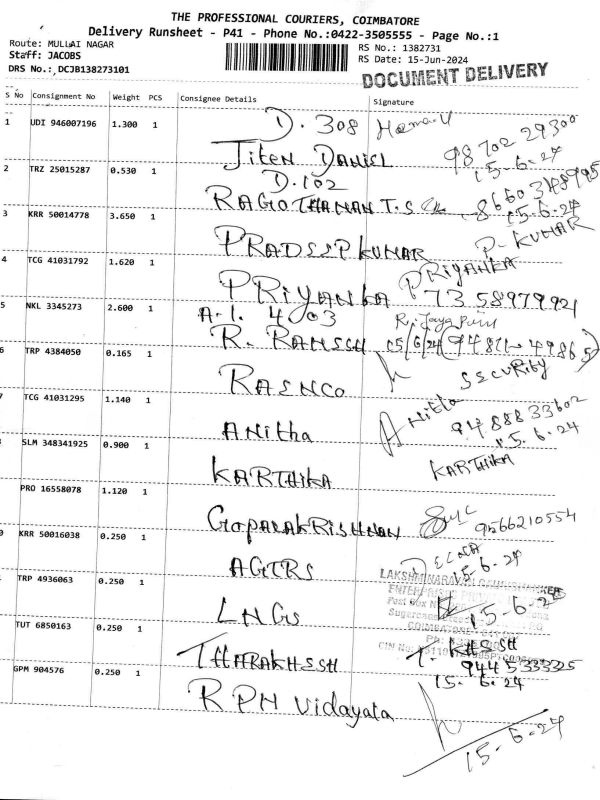 THE PROFESSIONAL COURIERS, COIMBATORE
Delivery Runsheet - P41 - Phone No.:0422-3505555 - Page No.:1
Route: MULLAI NAGAR
Staff: JACOBS
DRS No.: DCJB138273101
RS No.: 1382731
RS Date: 15-Jun-2024
DOCUMENT DELIVERY
S No Consignment No Weight PCS Consignee Details Signature
1 UDI 946007196 1.300 1 D. 308
JITEN DANIEL 98702 29300
15-6-24
2 TRZ 25015287 0.530 1 D.102
RAGOTHAMAN T.S 15.6.24
3 KRR 50014778 3.650 1 PRADEEP KUMAR P-KUMAR
4 TCG 41031792 1.620 1 PRIYANKA PRIYANKA
73 58979921
5 NKL 3345273 2.600 1 A-1. 403
R. RAMESH 15/6/24
6 TRP 4384050 0.165 1 RAENCO SECURITY
TCG 41031295 1.140 1 ANitha ANitta
9488833602
15.6.24
SLM 348341925 0.900 1 KARTHIKA KARTHIKA
PRO 16558078 1.120 1 GOPALAKRISHNAN 9566210554
KRR 50016038 0.250 1 AGTRS 15.6.24
TRP 4936063 0.250 1 LNGS 15-6-2
COIMBATORE
TUT 6850163 0.250 1 THARAKHESH T. KHESH
944533325
15-6-24
GPM 904576 0.250 1 RPN vidayala
15-6-24